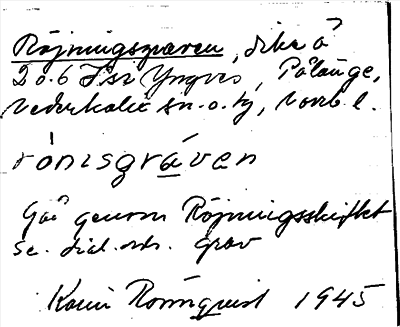 Röjningsgraven, dike å
2 o. 6 Fsi Yngves, Pålänge,
Nederkalix sn. o. tg, Norrb. l.
rönisgräven
Går genom Röjningsskiftet
se. dial. ordn. grav
Karin Rönnquist 1945